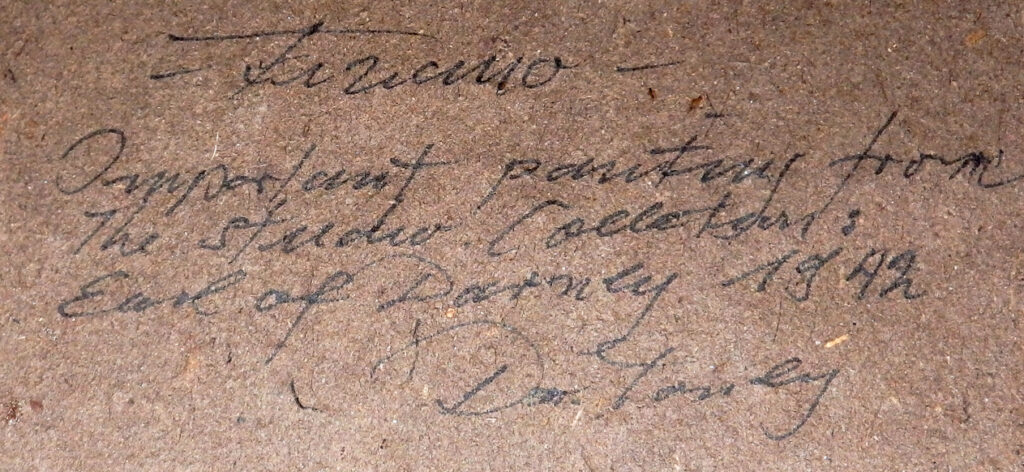 - Tiziano -
Important painting from
The studio Collection:
Earl of Darnley 1942